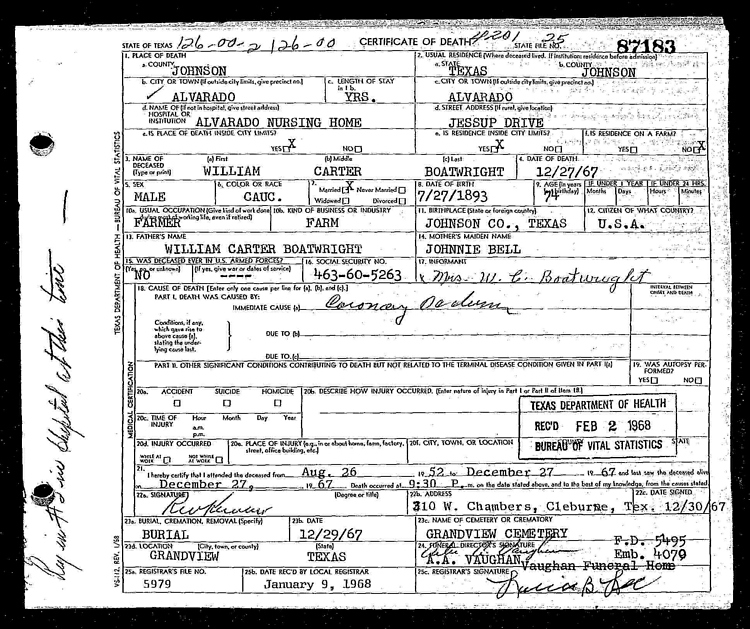 STATE OF TEXAS 126-00-2 126-00 CERTIFICATE OF DEATH 4201 STATE FILE NO. 25 87183
1. PLACE OF DEATH 2. USUAL RESIDENCE (Where deceased lived. If institution: residence before admission)
a. COUNTY JOHNSON a. STATE TEXAS b. COUNTY JOHNSON
b. CITY OR TOWN (If outside city limits, give precinct no.) c. LENGTH OF STAY in 1 b. c. CITY OR TOWN (If outside city limits, give precinct no.)
ALVARADO YRS. ALVARADO
d. NAME OF (If not in hospital, give street address) HOSPITAL OR INSTITUTION ALVARADO NURSING HOME d. STREET ADDRESS (If rural, give location) JESSUP DRIVE
e. IS PLACE OF DEATH INSIDE CITY LIMITS? e. IS RESIDENCE INSIDE CITY LIMITS? f. IS RESIDENCE ON A FARM?
YES X NO YES X NO YES NO X
3. NAME OF DECEASED (Type or print) (a) First (b) Middle (c) Last 4. DATE OF DEATH
WILLIAM CARTER BOATWRIGHT 12/27/67
5. SEX 6. COLOR OR RACE 7. Married X Never Married Widowed Divorced 8. DATE OF BIRTH 9. AGE (In years last birthday) IF UNDER 1 YEAR Months Days IF UNDER 24 HRS. Hours Minutes
MALE CAUC. 7/27/1893 74
10a. USUAL OCCUPATION (Give kind of work done during most of working life, even if retired) 10b. KIND OF BUSINESS OR INDUSTRY 11. BIRTHPLACE (State or foreign country) 12. CITIZEN OF WHAT COUNTRY?
FARMER FARM JOHNSON CO., TEXAS U.S.A.
13. FATHER'S NAME 14. MOTHER'S MAIDEN NAME
WILLIAM CARTER BOATWRIGHT JOHNNIE BELL
15. WAS DECEASED EVER IN U.S. ARMED FORCES? 16. SOCIAL SECURITY NO. 17. INFORMANT
(Yes, no, or unknown) (If yes, give war or dates of service)
NO ---- 463-60-5263 x Mrs. W. C. Boatwright
18. CAUSE OF DEATH [Enter only one cause per line for (a), (b), and (c).] INTERVAL BETWEEN ONSET AND DEATH
PART I. DEATH WAS CAUSED BY:
IMMEDIATE CAUSE (a) Coronary
Conditions, if any, which gave rise to above cause (a), stating the underlying cause last.
DUE TO (b)
DUE TO (c)
PART II. OTHER SIGNIFICANT CONDITIONS CONTRIBUTING TO DEATH BUT NOT RELATED TO THE TERMINAL DISEASE CONDITION GIVEN IN PART I(a) 19. WAS AUTOPSY PERFORMED? YES NO
MEDICAL CERTIFICATION
20a. ACCIDENT SUICIDE HOMICIDE 20b. DESCRIBE HOW INJURY OCCURRED. (Enter nature of injury in Part I or Part II of item 18.)
20c. TIME OF INJURY Hour Month Day Year a.m. p.m.
TEXAS DEPARTMENT OF HEALTH
REC'D FEB 2 1968
BUREAU OF VITAL STATISTICS
20d. INJURY OCCURRED WHILE AT WORK NOT WHILE AT WORK 20e. PLACE OF INJURY (e.g., in or about home, farm, factory, street, office building, etc.) 20f. CITY, TOWN, OR LOCATION STATE
21. I hereby certify that I attended the deceased from Aug. 26 19 52 to December 27 19 67 and last saw the deceased alive
on December 27, 19 67 Death occurred at 9:30 P. m. on the date stated above, and to the best of my knowledge, from the causes stated
22a. SIGNATURE (Degree or title) 22b. ADDRESS 22c. DATE SIGNED
310 W. Chambers, Cleburne, Tex. 12/30/67
23a. BURIAL, CREMATION, REMOVAL (Specify) 23b. DATE 23c. NAME OF CEMETERY OR CREMATORY
BURIAL 12/29/67 GRANDVIEW CEMETERY F.D. 5495
23d. LOCATION (City, town, or county) (State) 24. FUNERAL DIRECTOR'S SIGNATURE Emb. 4079
GRANDVIEW TEXAS A.A. VAUGHAN Vaughan Funeral Home
25a. REGISTRAR'S FILE NO. 25b. DATE REC'D BY LOCAL REGISTRAR 25c. REGISTRAR'S SIGNATURE
5979 January 9, 1968
TEXAS DEPARTMENT OF HEALTH — BUREAU OF VITAL STATISTICS
VS-112, REV. 1/58
Hospital at this time —